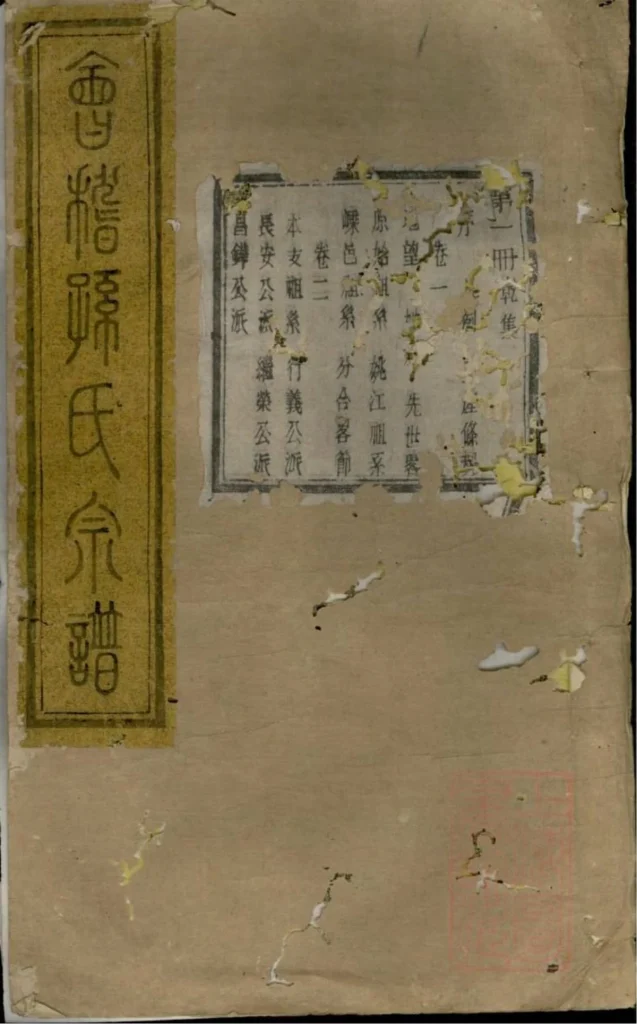 會稽孫氏宗譜
第一冊 集
序 條
卷一
望 先世畧
原始祖系 姚江祖系
嵊邑祖系 分合畧節
卷二
本支祖系 行義公派
長安公派 繼榮公派
昌鐸公派